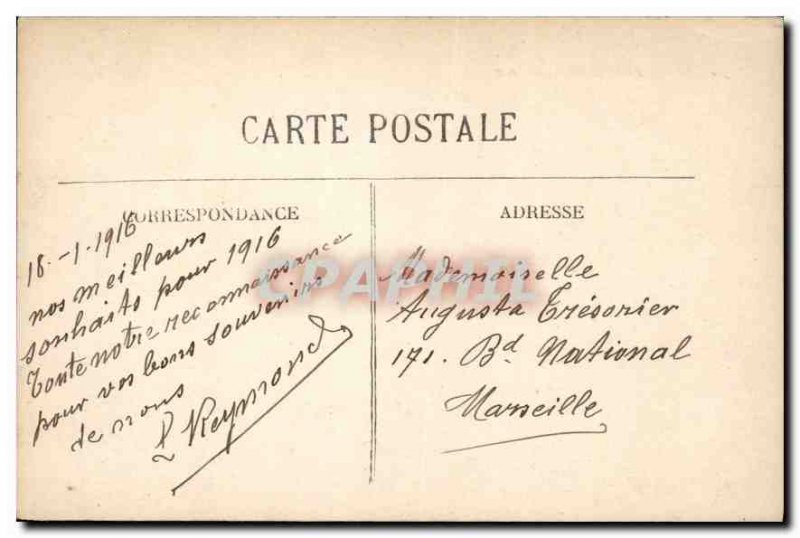 CARTE POSTALE
CORRESPONDANCE
18-1-1916
nos meilleurs
souhaits pour 1916
Toute notre reconnaissance
pour vos bons souvenirs
de nous
Reymond
ADRESSE
Mademoiselle
Augusta Trésorier
171. Bd. National
Marseille
CPAPHIL